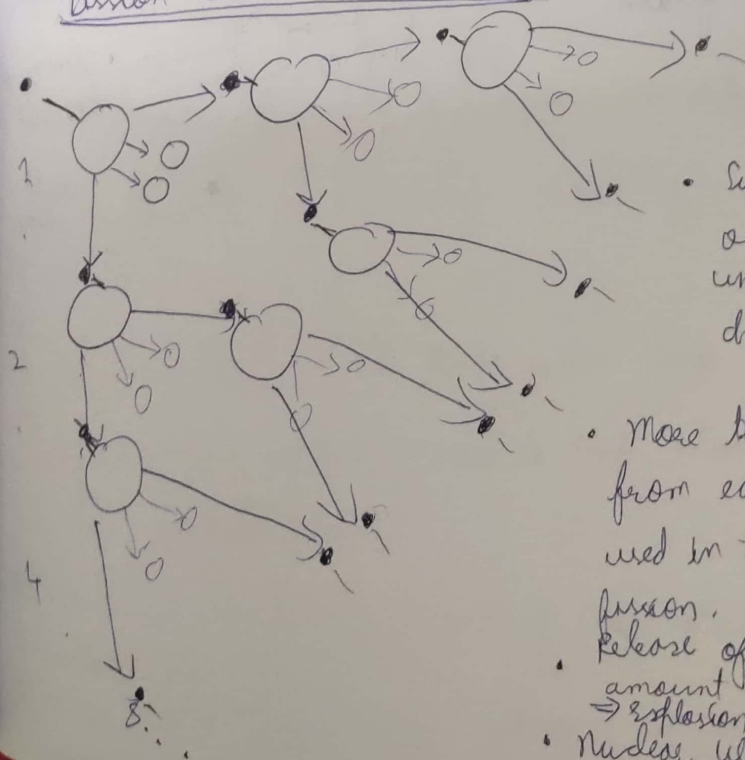 fission
1
2
4
8...
• Su
o
un
d
• More t
from ea
used in
fission.
• Release of
amount
⇒ Explosion
• Nuclear